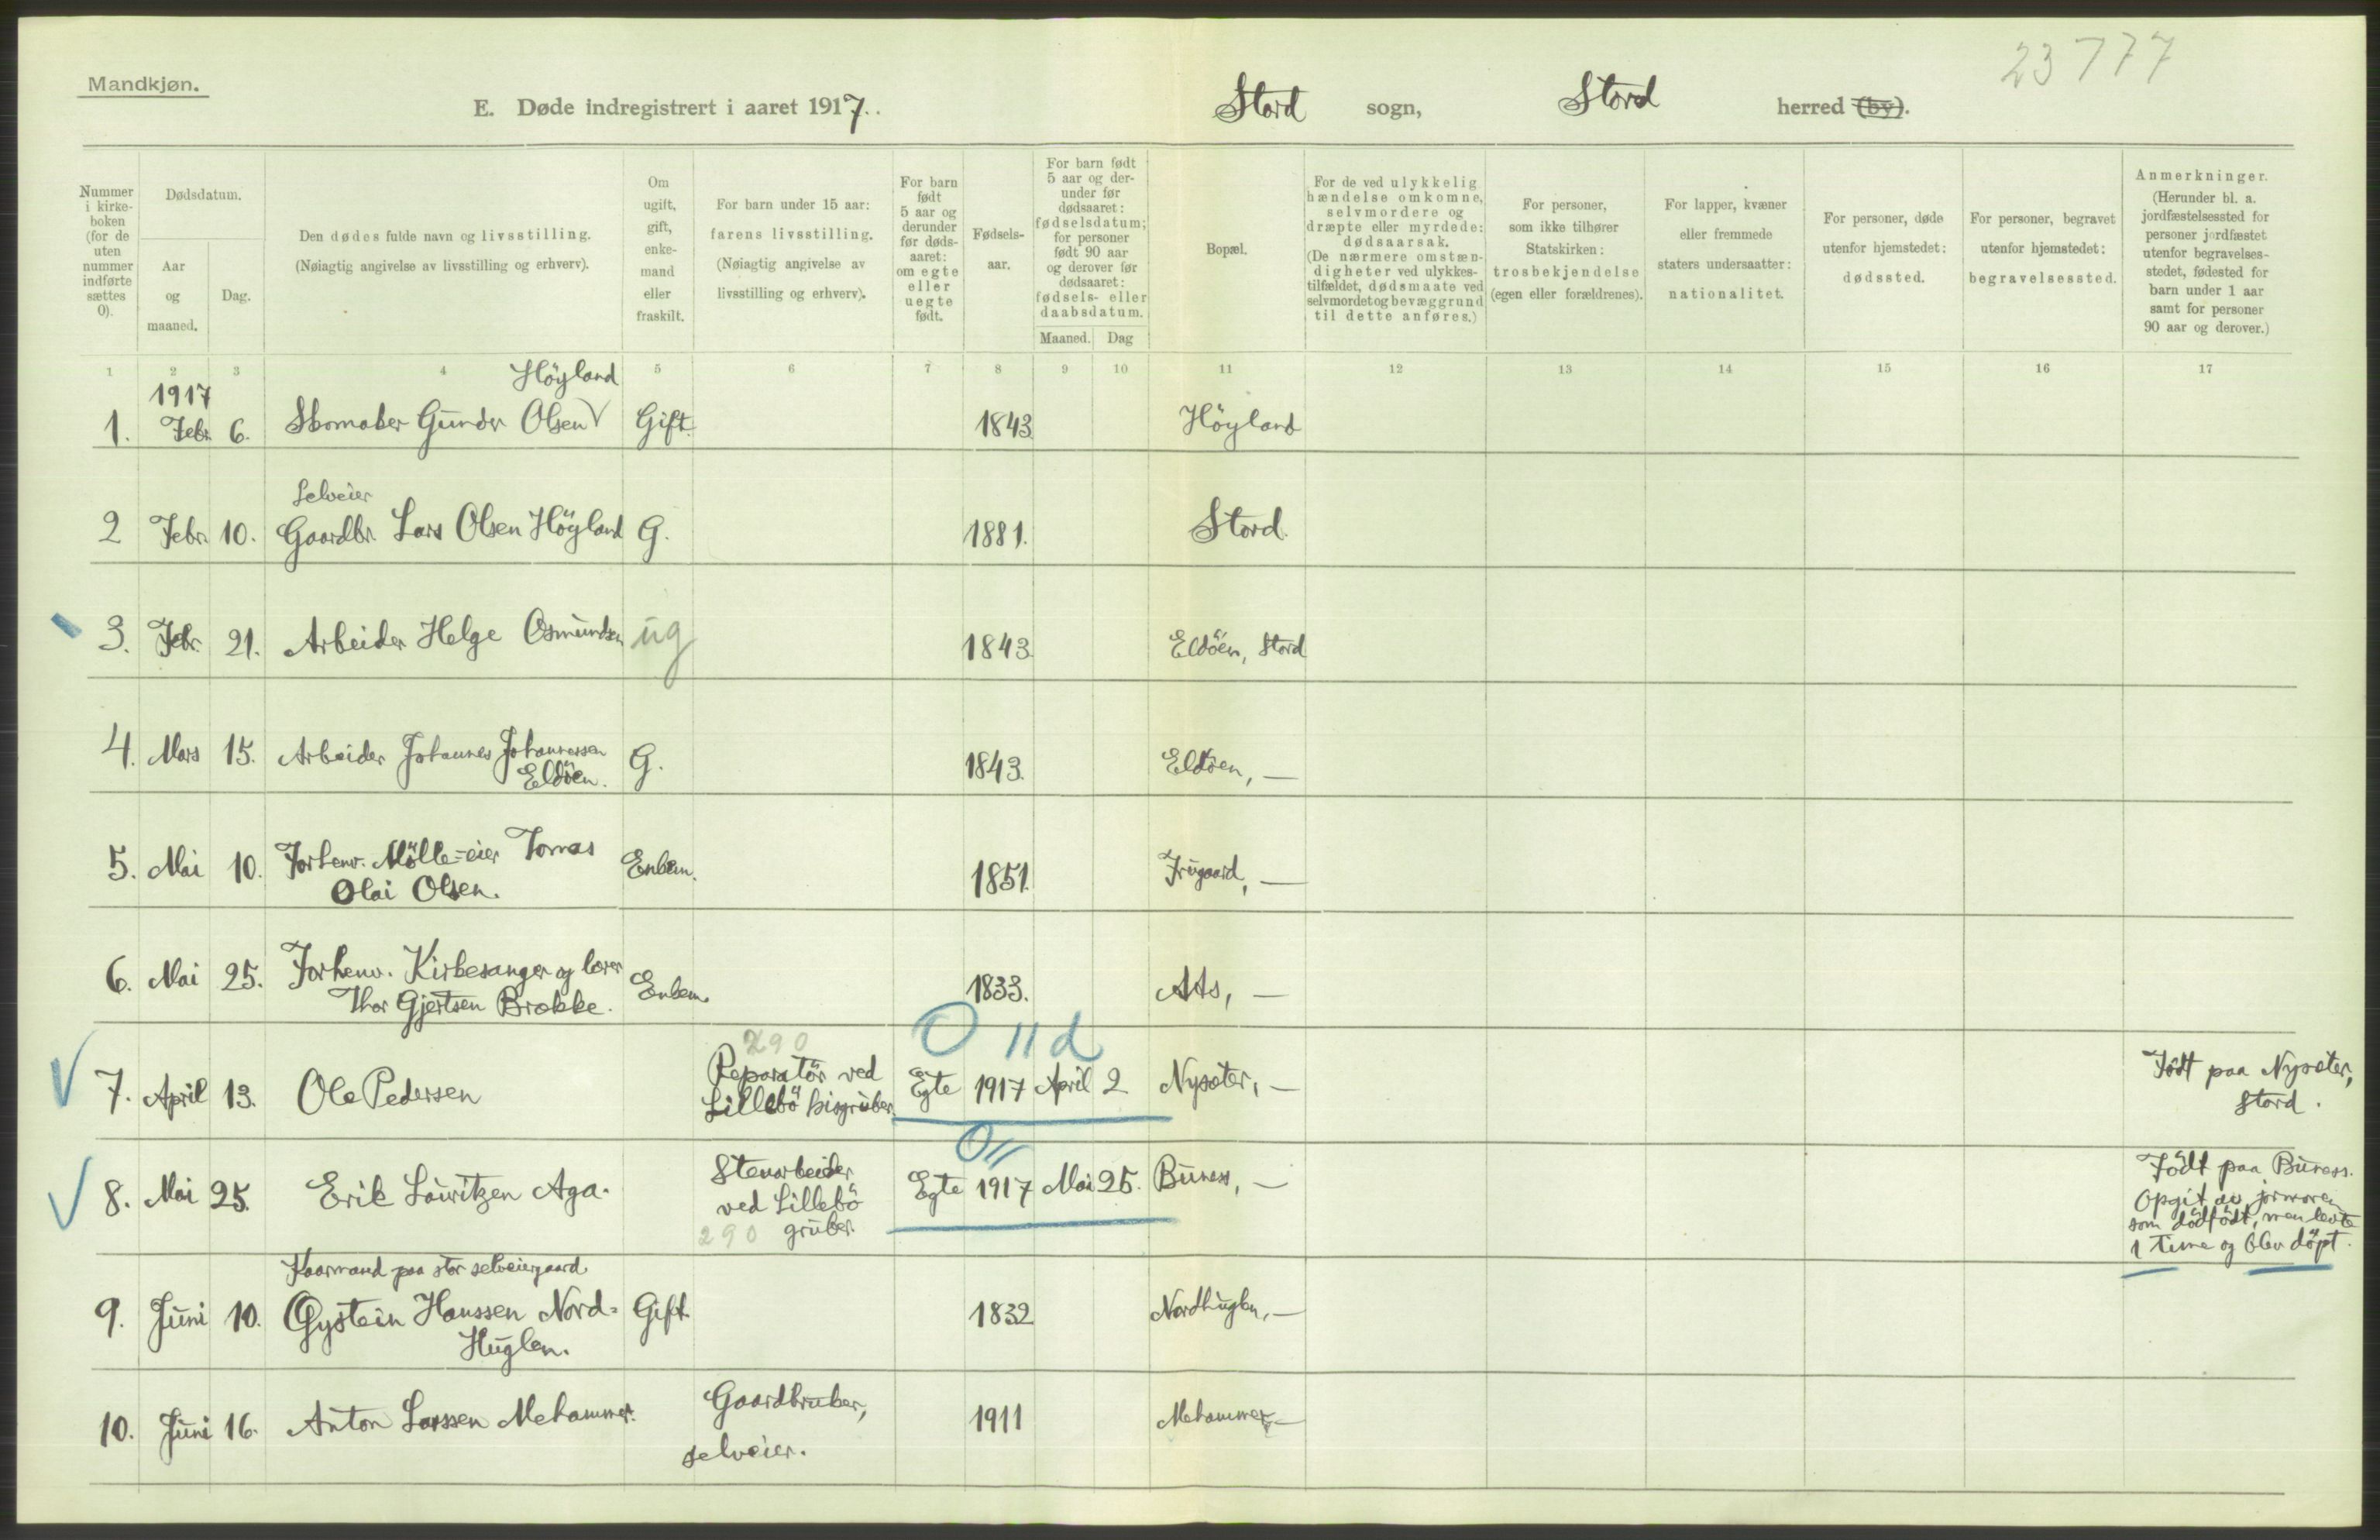 23777
Mandkjøn.
E. Døde indregistrert i aaret 1917. Stord sogn, Stord herred (by).
Nummer i kirkeboken (for de uten nummer indførte sættes 0).
Dødsdatum.
Aar og maaned.
Dag.
Den dødes fulde navn og livsstilling.
(Nøiagtig angivelse av livsstilling og erhverv).
Om ugift, gift, enkemand eller fraskilt.
For barn under 15 aar: farens livsstilling.
(Nøiagtig angivelse av livsstilling og erhverv).
For barn født 5 aar og derunder før dødsaaret: om egte eller uegte født.
Fødselsaar.
For barn født 5 aar og derunder før dødsaaret: fødselsdatum; for personer født 90 aar og derover før dødsaaret: fødsels- eller daabsdatum.
Maaned. Dag
Bopæl.
For de ved ulykkelig hændelse omkomne, selvmordere og dræpte eller myrdede: dødsaarsak.
(De nærmere omstændigheter ved ulykkestilfældet, dødsmaate ved selvmordet og bevæggrund til dette anføres.)
For personer, som ikke tilhører Statskirken: trosbekjendelse (egen eller forældrenes).
For lapper, kvæner eller fremmede staters undersaatter: nationalitet.
For personer, døde utenfor hjemstedet: dødssted.
For personer, begravet utenfor hjemstedet: begravelsessted.
Anmerkninger.
(Herunder bl. a. jordfæstelsessted for personer jordfæstet utenfor begravelsesstedet, fødested for barn under 1 aar samt for personer 90 aar og derover.)
1 2 3 4 5 6 7 8 9 10 11 12 13 14 15 16 17
1917 Höyland
1. Febr. 6. Skomaker Gunder Olsen V Gift. 1843 Höyland
Selveier
2 Febr. 10. Gaardbr. Lars Olsen Höyland G. 1881. Stord.
3. Febr. 21. Arbeider Helge Osmundsen ug 1843. Eldöen, Stord
4. Mars 15. Arbeider Johannes Johannessen G. 1843. Eldöen, —
Eldöen.
5. Mai 10. Forhenv. Mölle-eier Tomas Enkem. 1851. Frugaard, —
Olai Olsen.
6. Mai 25. Forhenv. Kirkesanger og lærer Enkem. 1833. —
Thor Gjertsen Brække.
290 0 11 d
7. April 13. Ole Pedersen Reparatör ved Egte 1917 April 2 Nysæter, — Födt paa Nysæter,
Lillebö kisgruber. Stord.
0 11
8. Mai 25. Erik Lauritzen Aga. Stenarbeider Egte 1917 Mai 25. Buness, — Födt paa Buness.
ved Lillebö Opgit av jormoren
290 gruber. som dödfödt, men levte
1 time og blev döpt.
Kaarmand paa stor selveiergaard
9. Juni 10. Øystein Hanssen Nord- Gift 1832 Nordhuglen, —
Huglen.
10. Juni 16. Anton Larssen Mehammer. Gaardbruker, 1911 Mehammer, —
selveier.